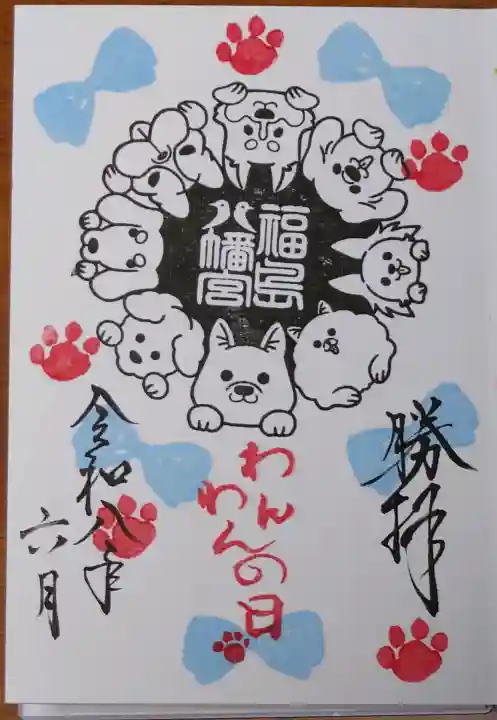 勝拝
福島
八幡宮
わん
わんの日
令和八年
六月